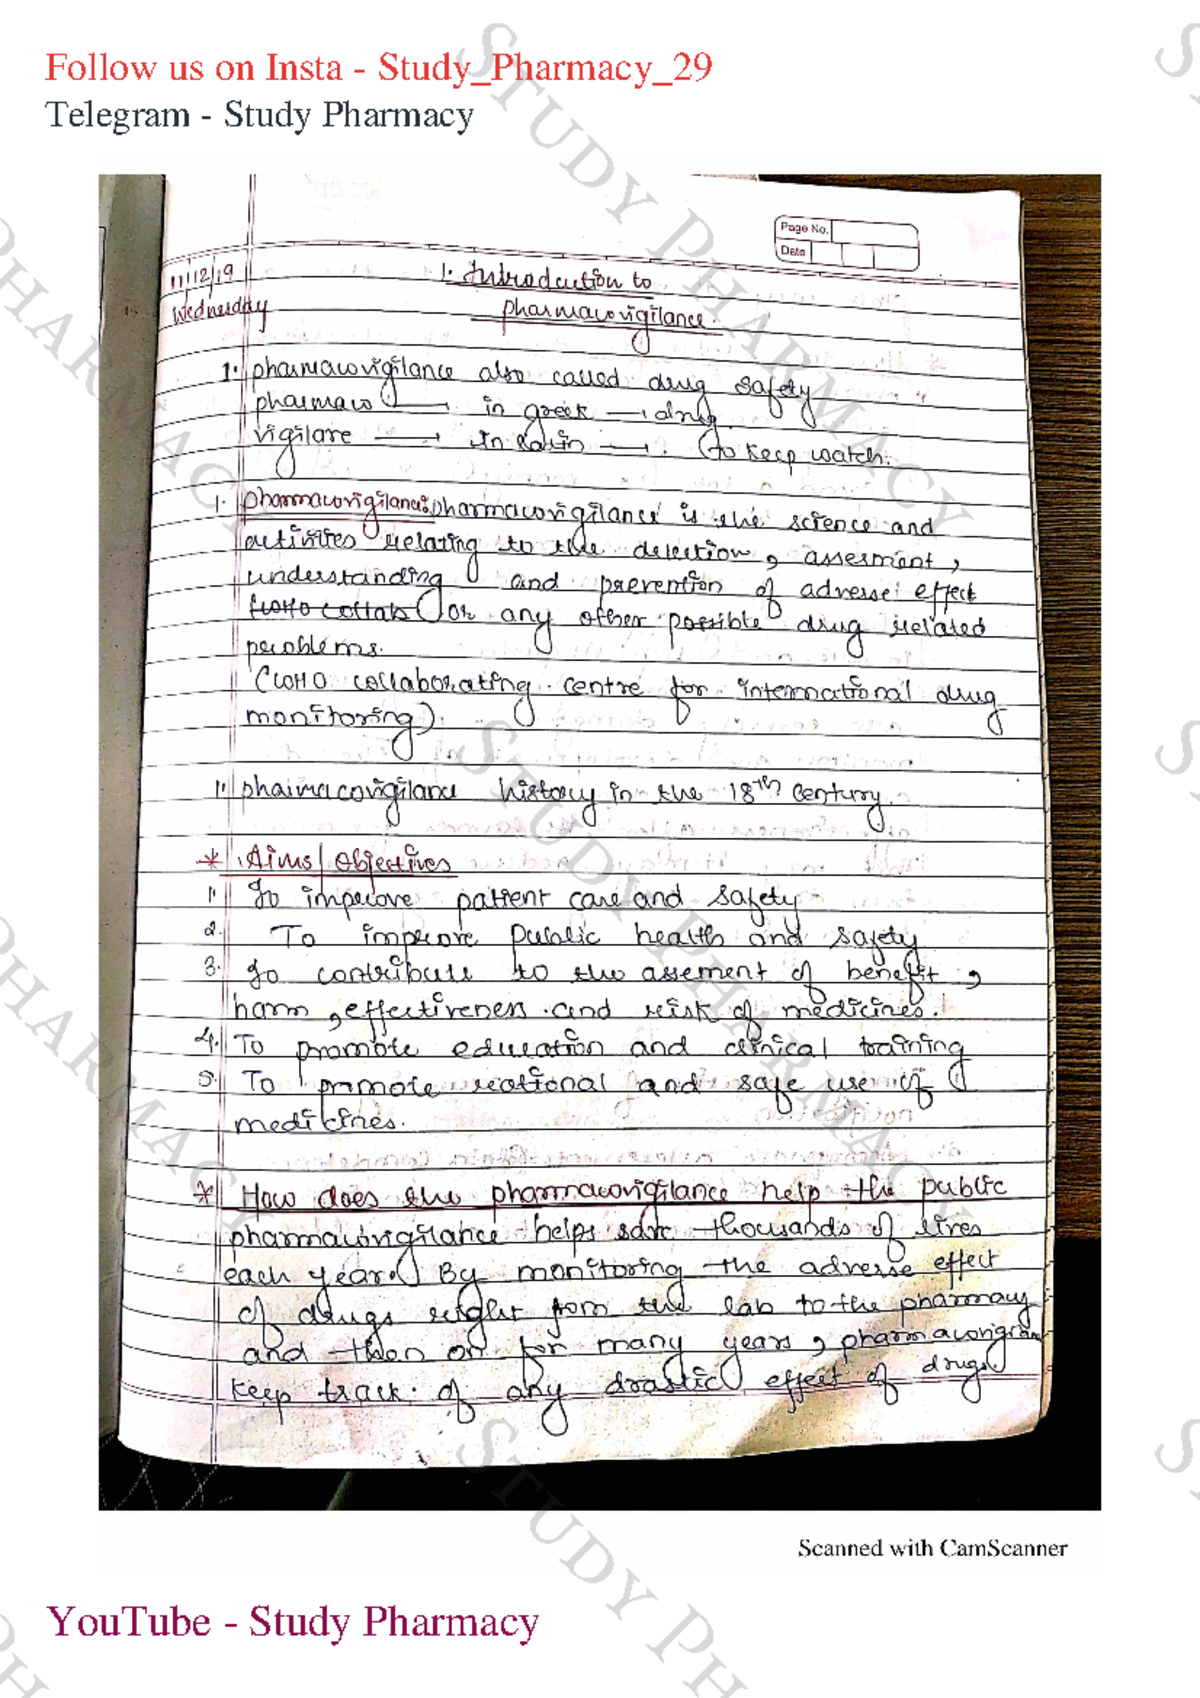 Follow us on Insta - Study_Pharmacy_29
Telegram - Study Pharmacy
Page No.
Date
11/12/19
Wednesday
1. Introdcution to
pharmacovigilance.
1. pharmacovigilance also called drug safety
pharmaco → in greek → drug
vigilare → In Latin → to keep watch.
1. pharmacovigilance: pharmacovigilance is the science and
activities relating to the detection, assesment,
understanding and prevention of adverse effect
(WHO collab or any other possible drug related
problems.
(WHO collaborating centre for international drug
monitoring)
11 pharmacovigilance history in the 18th century.
* Aims/Objectives
1. To improve patient care and safety
2. To improve public health and safety
3. To contribute to the assement of benefit,
harm, effectiveness and risk of medicines.
4. To promote education and clinical training
5. To promote rational and safe use of
medicines.
* How does the pharmacovigilance help the public
pharmacovigilance helps save thousands of lives
each year. By monitoring the adverse effect
of drugs right from the lab to the pharmacy
and then on for many years, pharmacovigran
keep track of any drastic effect of drugs
Scanned with CamScanner
YouTube - Study Pharmacy
STUDY PHARMACY